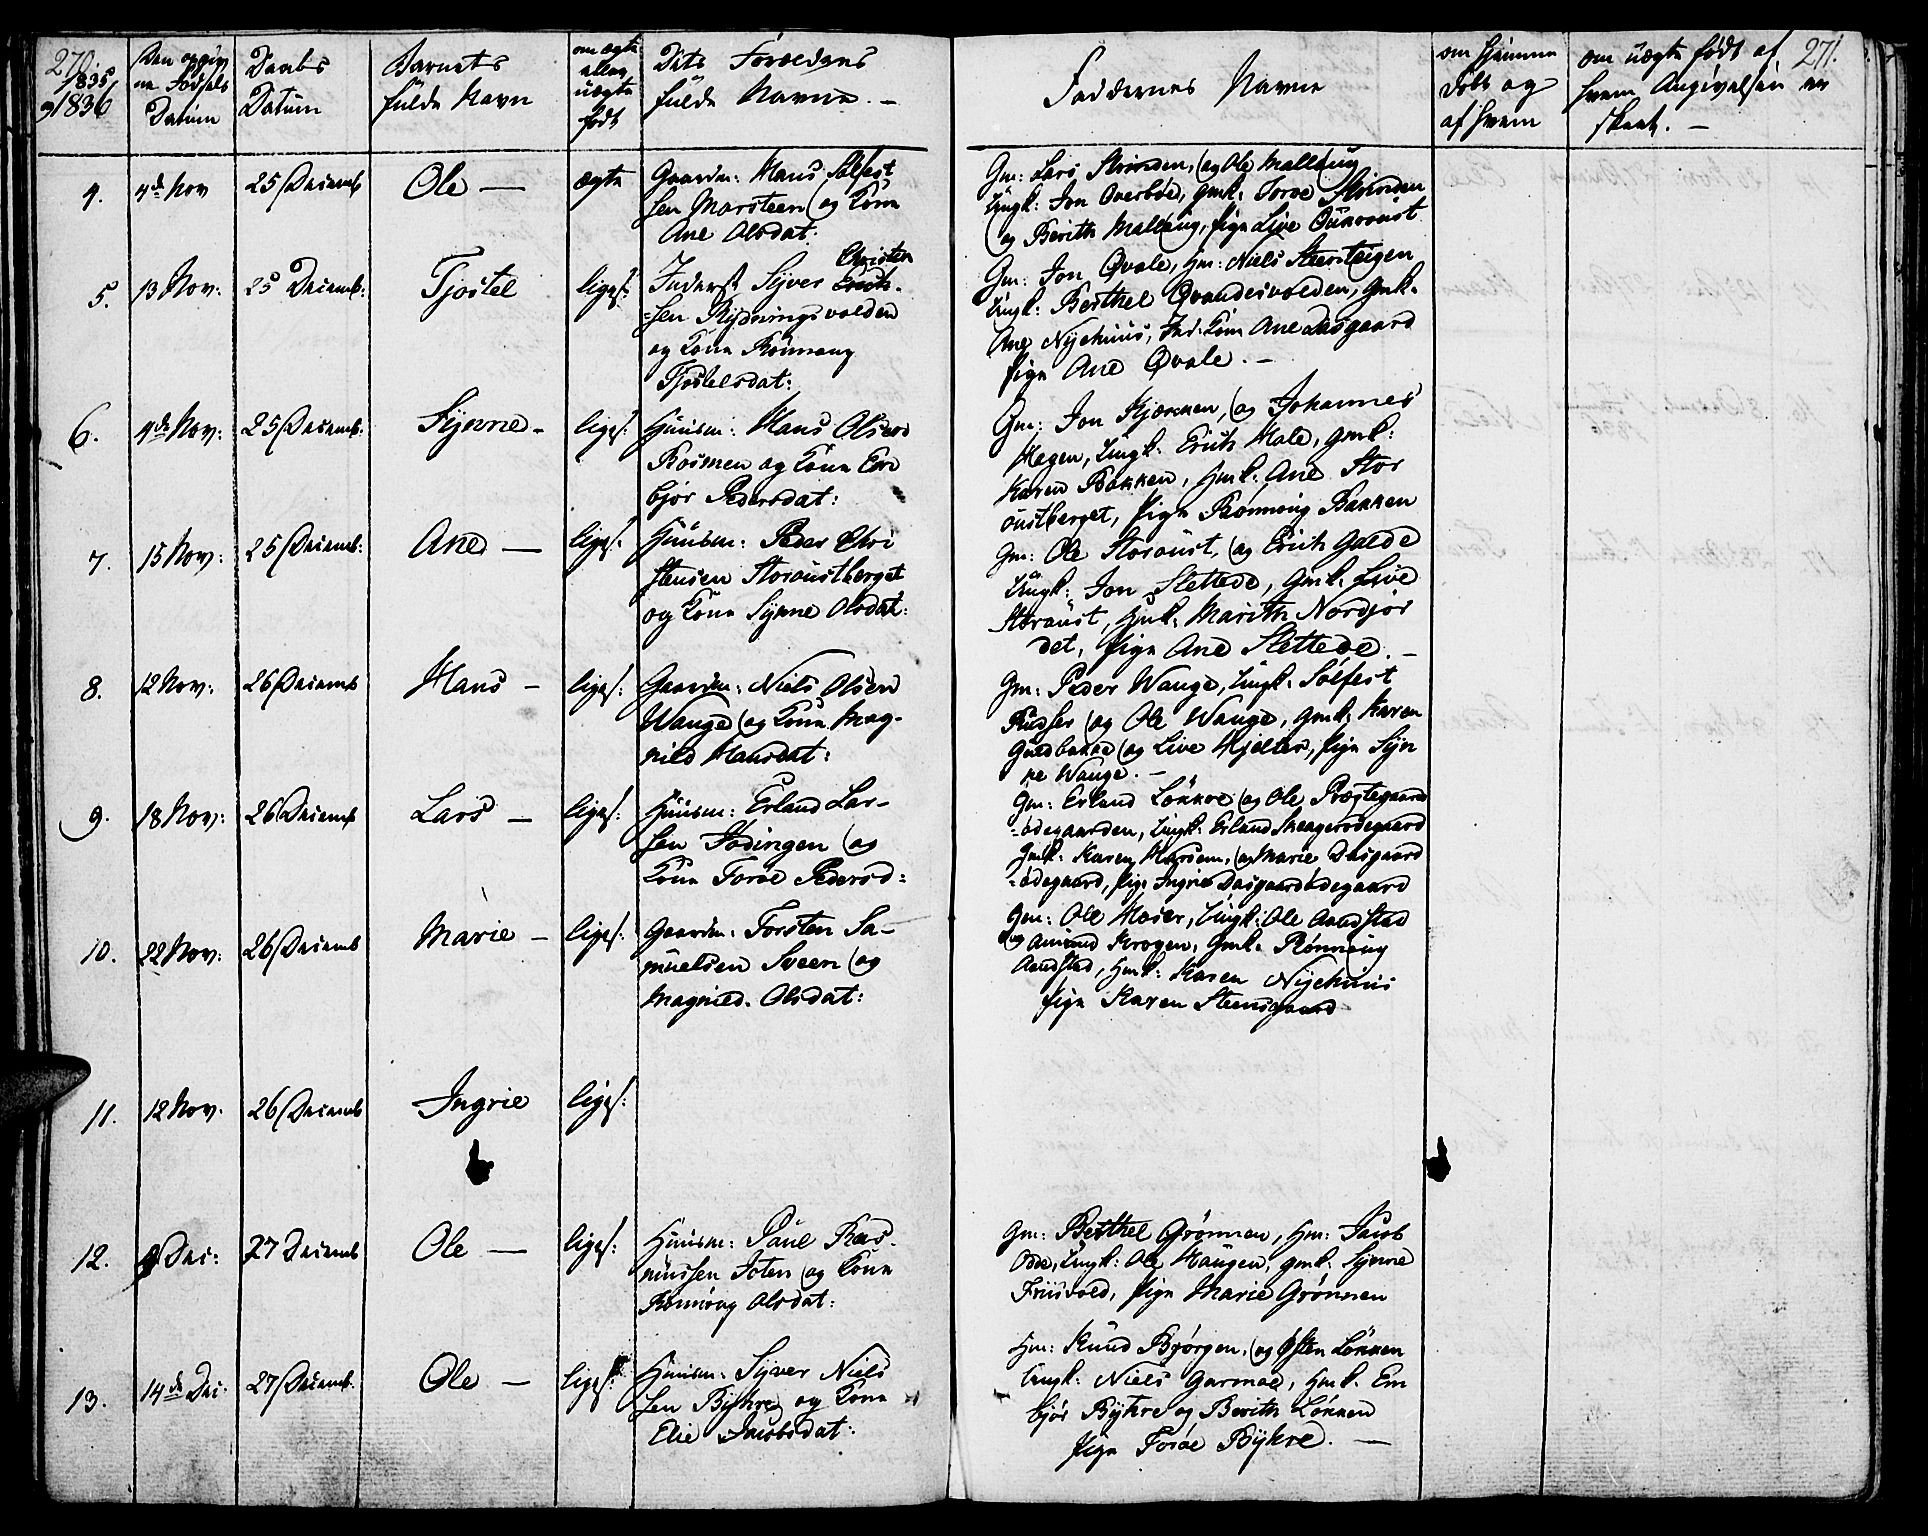 270.
1835
1836
Den opgiv
ne Fødsels
Datum
Daabs
Datum
Barnets
fulde Navn
om ægte
eller
uægte
født
Dets Forældres
fulde Navne. -
Faddernes Navne
om hjemme
døbt og
af hvem
om uægte født af
hvem Angivelsen er
skeet. -
271.
4. 4de Nov 25 Decemb Ole - ægte
Gaardm: Hans Solfest
sen Marsteen og Kone
Ane Olsdat:
Gm: Lars Strinden, og Ole Malloug
Ungk: Jon Overboe, Gmk: Toroe Strinden
og Berith Malloug, Pige Live
5. 13 Nov: 25 Decemb: Tjostel liges:
Inderst Syver Christen
sen Rydningsvolden
og Kone Rønnoug
Tjostelsdat:
Gm: Jon Qvale, Hm: Niels
Ungk: Berthel Qvandesvolden, Gmk.
Ane Nyehuus, Ind: Kone Ane Dasgaard
Pige Ane Qvale. -
6. 4de Nov: 25 Decemb: Synne - liges:
Huusm: Hans Olsen
Bosmen og Kone Em
bjør Pedersdat:
Gm: Jon Kjørmen, og Johannes
Hagen, Ungk: Erich Hole, Gmk:
Karen Bakken, Hmk: Ane Stor
oustberget, Pige Rønnoug Bakken
7. 15 Nov: 25 Decemb: Ane - liges:
Huusm: Peder Chri
stensen Storoustberget
og Kone Synne Olsdat:
Gm: Ole Storoust, og Erich Galde
Ungk: Jon Slettede, Gmk: Live
Storoust, Hmk: Marith Nordjor
det, Pige Ane Slettede. -
8. 12 Nov: 26 Decemb Hans - liges:
Gaardm: Niels Olsen
Wange og Kone Mag-
nild Hansdat:
Gm: Peder Wange, Ungk: Solfest
og Ole Wange, Gmk: Karen
og Live Hjelter, Pige Syn
ne Wange. -
9. 18 Nov: 26 Decemb Lars - liges:
Huusm: Erland Lar-
sen Stødingen og
Kone Toroe Pedersd:
Gm: Erland Løkkre og Ole Prægtegaard
=ødegaarden, Ungk: Erland Skeagerødegaard
Gmk: Karen Horsem, og Marie Dasgaard
=ødegaard, Pige Ingrie Dasgaardødegaard
10. 22 Nov: 26 Decemb Marie - liges:
Gaardm: Torsten Sa-
muelsen Sveen og
Magnild. Olsdat:
Gm: Ole Moser, Ungk: Ole Aandstad
og Amund Krogen, Gmk. Rønnoug
Aandstad, Hmk: Karen Nyehuus
Pige Karen Steensgaard
11. 12 Nov. 26 Decemb Ingrie liges:
12. Dec: 27 Decemb Ole - liges:
Huusm: Paul Ras-
mussen Joten og Kone
Rønnoug Olsdat:
Gm: Berthel Grønnen, Hm: Jacob
Odde, Ungk: Ole Haugen, Gmk. Synne
Friisvold, Pige Marie Grønnen
13. 14de Dec: 27 Decemb. Ole - liges:
Huusm: Syver Niels
sen Bykre og Kone
Elie Jacobsdat:
Hm: Knud Bjørgen, og Østen Løkken
Ungk: Niels Garmoe, Hmk. Em
bjør Bykre og Berith Løkken
Pige Toroe Bykre. -